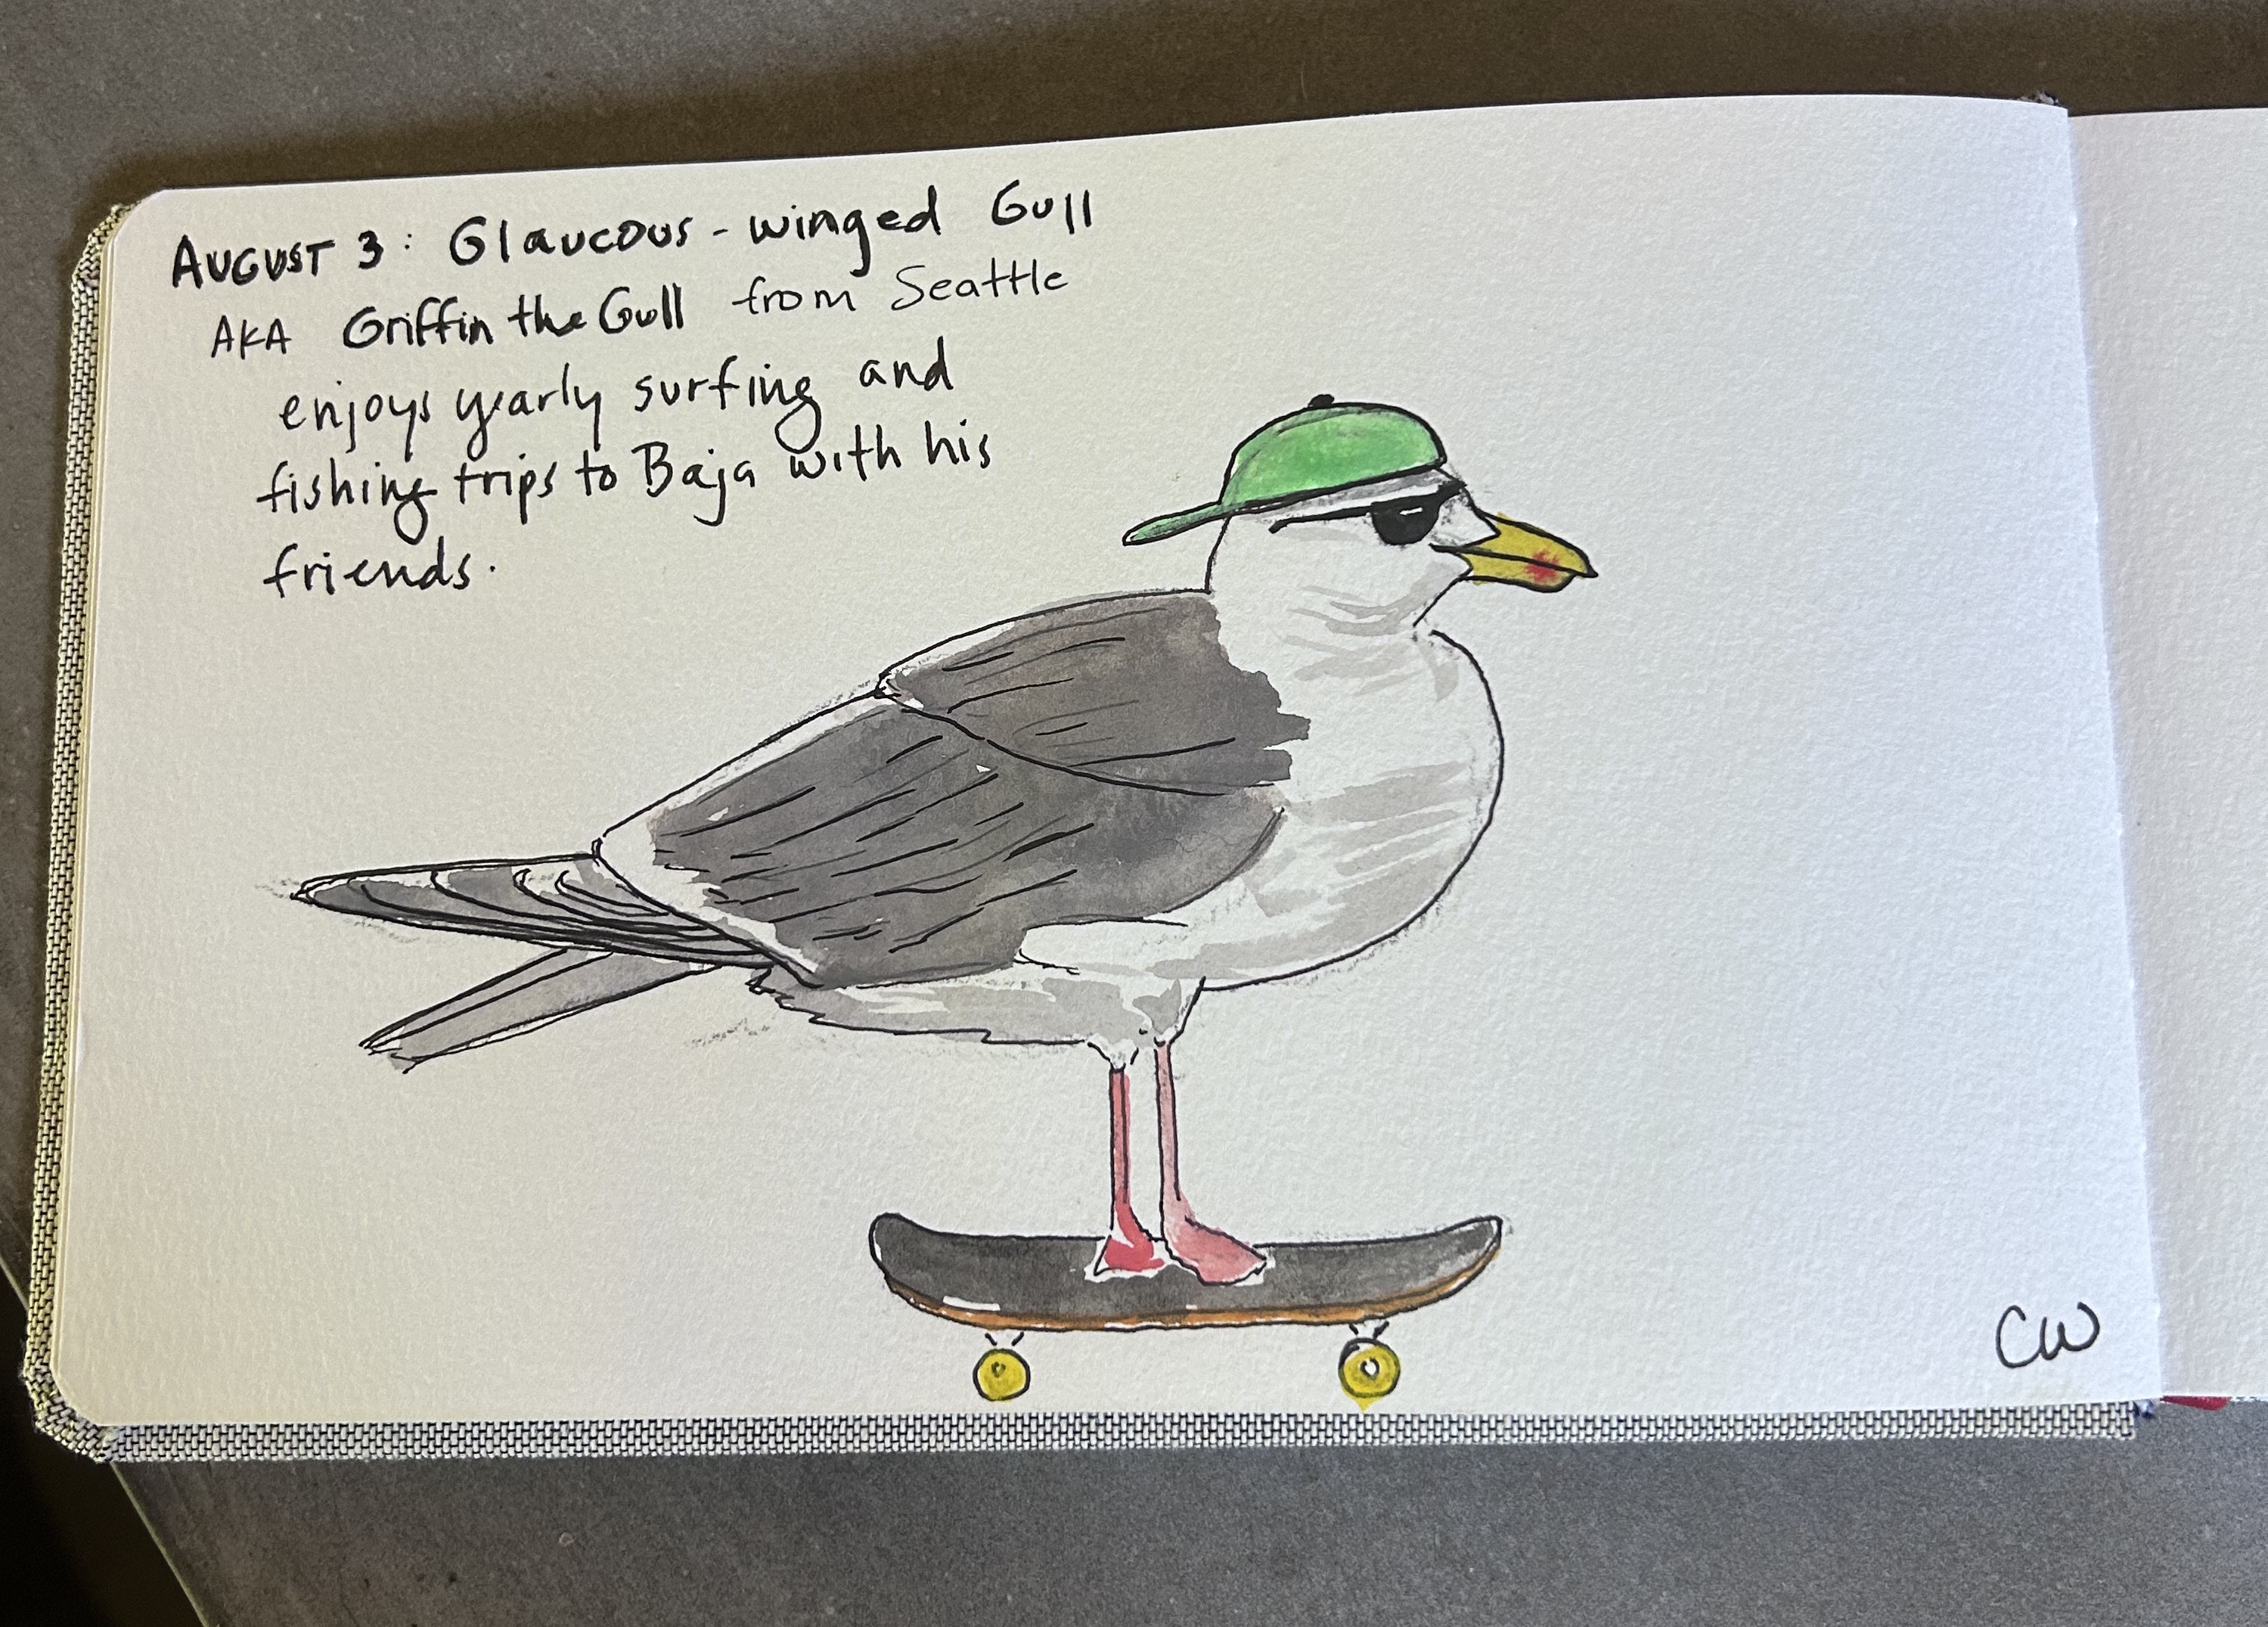 AUGUST 3: Glaucous-winged Gull
AKA Griffin the Gull from Seattle
enjoys yearly surfing and
fishing trips to Baja with his
friends.
CW